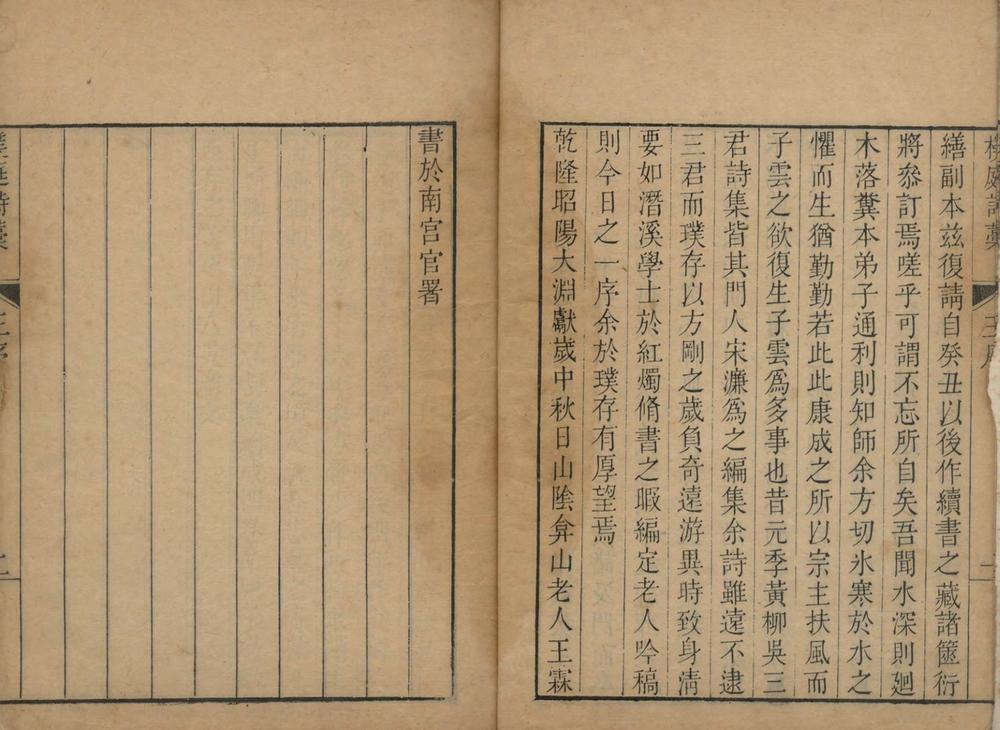 繕副本茲復請自癸丑以後作續書之藏諸篋衍
將叅訂焉嗟乎可謂不忘所自矣吾聞水深則廻
木落糞本弟子通利則知師余方切氷寒於水之
懼而生猶勤勤若此此康成之所以宗主扶風而
子雲之欲復生子雲爲多事也昔元季黃柳吳三
君詩集皆其門人宋濂爲之編集余詩雖遠不逮
三君而璞存以方剛之歲負奇遠游異時致身清
要如潛溪學士於紅燭脩書之暇編定老人吟稿
則今日之一序余於璞存有厚望焉
乾隆昭陽大淵獻歲中秋日山陰弇山老人王霖
書於南宮官署